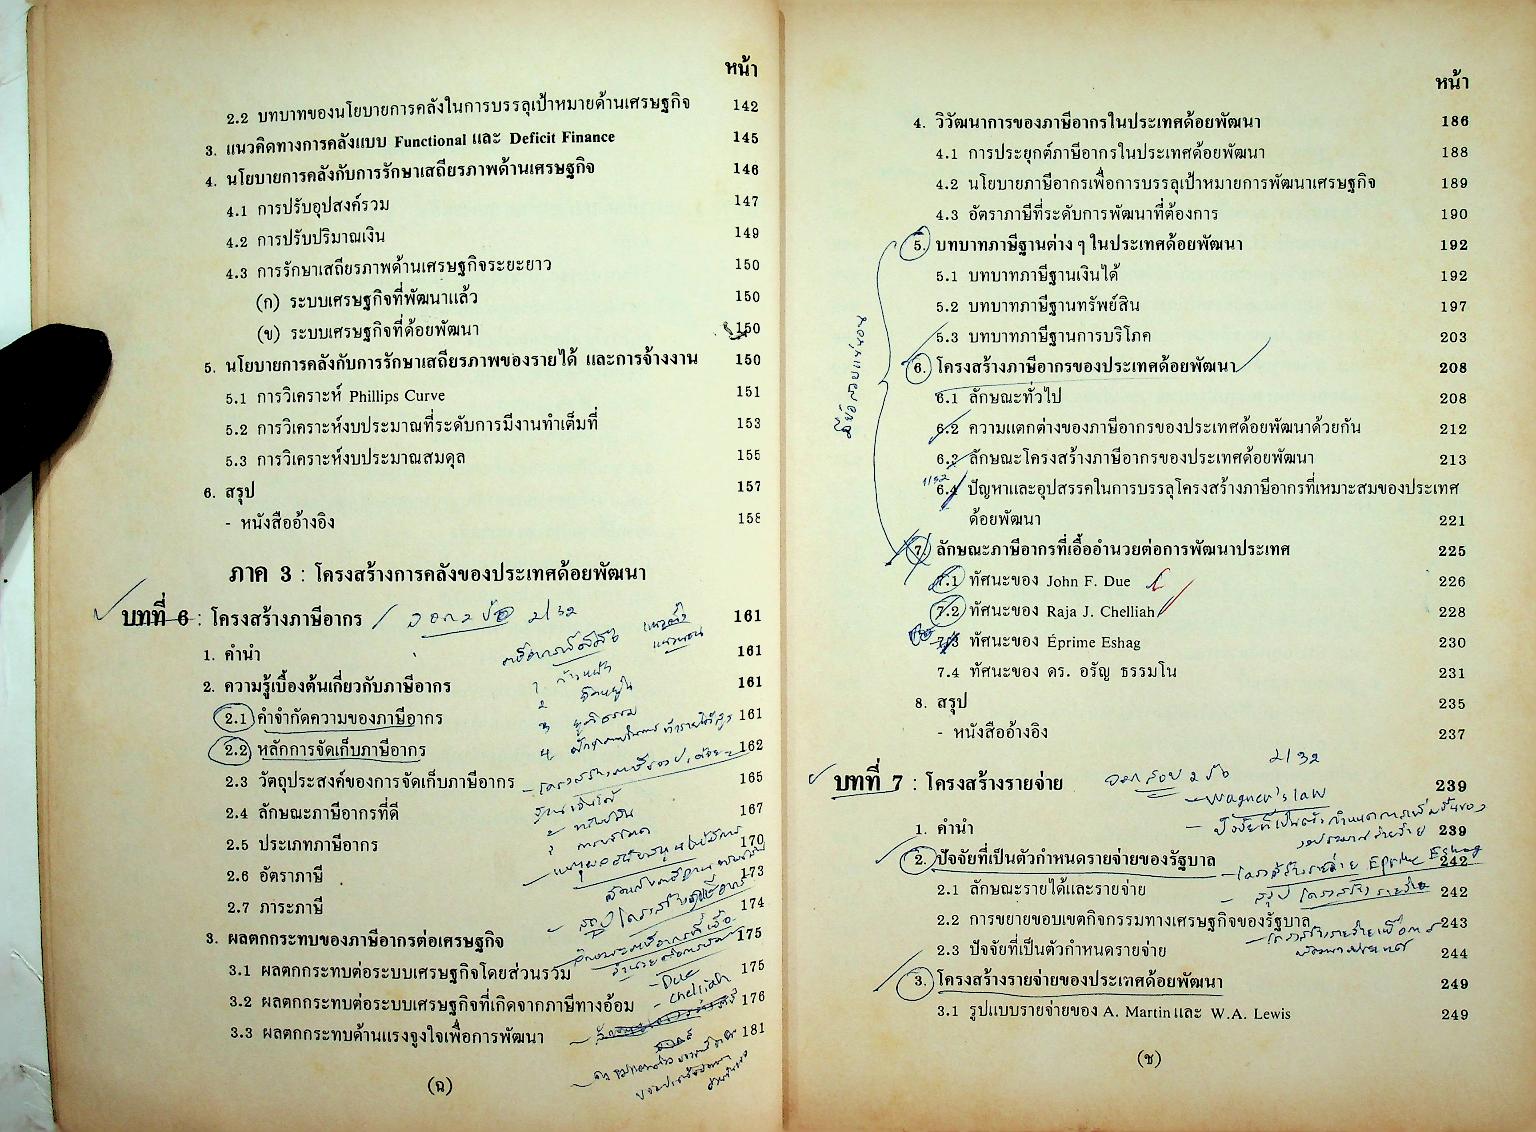 หน้า
2.2 บทบาทของนโยบายการคลังในการบรรลุเป้าหมายด้านเศรษฐกิจ 142
3. แนวคิดทางการคลังแบบ Functional และ Deficit Finance 145
4. นโยบายการคลังกับการรักษาเสถียรภาพด้านเศรษฐกิจ 146
4.1 การปรับอุปสงค์รวม 147
4.2 การปรับปริมาณเงิน 149
4.3 การรักษาเสถียรภาพด้านเศรษฐกิจระยะยาว 150
(ก) ระบบเศรษฐกิจที่พัฒนาแล้ว 150
(ข) ระบบเศรษฐกิจที่ด้อยพัฒนา 150
5. นโยบายการคลังกับการรักษาเสถียรภาพของรายได้ และการจ้างงาน 150
5.1 การวิเคราะห์ Phillips Curve 151
5.2 การวิเคราะห์งบประมาณที่ระดับการมีงานทำเต็มที่ 153
5.3 การวิเคราะห์งบประมาณสมดุล 155
6. สรุป 157
- หนังสืออ้างอิง 158
ภาค 3 : โครงสร้างการคลังของประเทศด้อยพัฒนา
บทที่ 6 : โครงสร้างภาษีอากร 161
1. คำนำ 161
2. ความรู้เบื้องต้นเกี่ยวกับภาษีอากร 161
2.1 คำจำกัดความของภาษีอากร 161
2.2 หลักการจัดเก็บภาษีอากร 162
2.3 วัตถุประสงค์ของการจัดเก็บภาษีอากร 165
2.4 ลักษณะภาษีอากรที่ดี 167
2.5 ประเภทภาษีอากร 170
2.6 อัตราภาษี 173
2.7 ภาระภาษี 174
3. ผลตกกระทบของภาษีอากรต่อเศรษฐกิจ 175
3.1 ผลตกกระทบต่อระบบเศรษฐกิจโดยส่วนรวม 175
Due
3.2 ผลตกกระทบต่อระบบเศรษฐกิจที่เกิดจากภาษีทางอ้อม 176
Chelliah
3.3 ผลตกกระทบด้านแรงจูงใจเพื่อการพัฒนา 181
(ฉ)
หน้า
4. วิวัฒนาการของภาษีอากรในประเทศด้อยพัฒนา 186
4.1 การประยุกต์ภาษีอากรในประเทศด้อยพัฒนา 188
4.2 นโยบายภาษีอากรเพื่อการบรรลุเป้าหมายการพัฒนาเศรษฐกิจ 189
4.3 อัตราภาษีที่ระดับการพัฒนาที่ต้องการ 190
5. บทบาทภาษีฐานต่าง ๆ ในประเทศด้อยพัฒนา 192
5.1 บทบาทภาษีฐานเงินได้ 192
5.2 บทบาทภาษีฐานทรัพย์สิน 197
5.3 บทบาทภาษีฐานการบริโภค 203
6. โครงสร้างภาษีอากรของประเทศด้อยพัฒนา 208
6.1 ลักษณะทั่วไป 208
6.2 ความแตกต่างของภาษีอากรของประเทศด้อยพัฒนาด้วยกัน 212
6.3 ลักษณะโครงสร้างภาษีอากรของประเทศด้อยพัฒนา 213
6.4 ปัญหาและอุปสรรคในการบรรลุโครงสร้างภาษีอากรที่เหมาะสมของประเทศ
ด้อยพัฒนา 221
7. ลักษณะภาษีอากรที่เอื้ออำนวยต่อการพัฒนาประเทศ 225
7.1 ทัศนะของ John F. Due 226
7.2 ทัศนะของ Raja J. Chelliah 228
7.3 ทัศนะของ Éprime Eshag 230
7.4 ทัศนะของ ดร. อรัญ ธรรมโน 231
8. สรุป 235
- หนังสืออ้างอิง 237
บทที่ 7 : โครงสร้างรายจ่าย 239
Wagner's law
1. คำนำ 239
2. ปัจจัยที่เป็นตัวกำหนดรายจ่ายของรัฐบาล 242
โครงสร้างรายจ่าย Eprime Eshag
2.1 ลักษณะรายได้และรายจ่าย 242
2.2 การขยายขอบเขตกิจกรรมทางเศรษฐกิจของรัฐบาล 243
2.3 ปัจจัยที่เป็นตัวกำหนดรายจ่าย 244
3. โครงสร้างรายจ่ายของประเทศด้อยพัฒนา 249
3.1 รูปแบบรายจ่ายของ A. Martin และ W.A. Lewis 249
(ช)